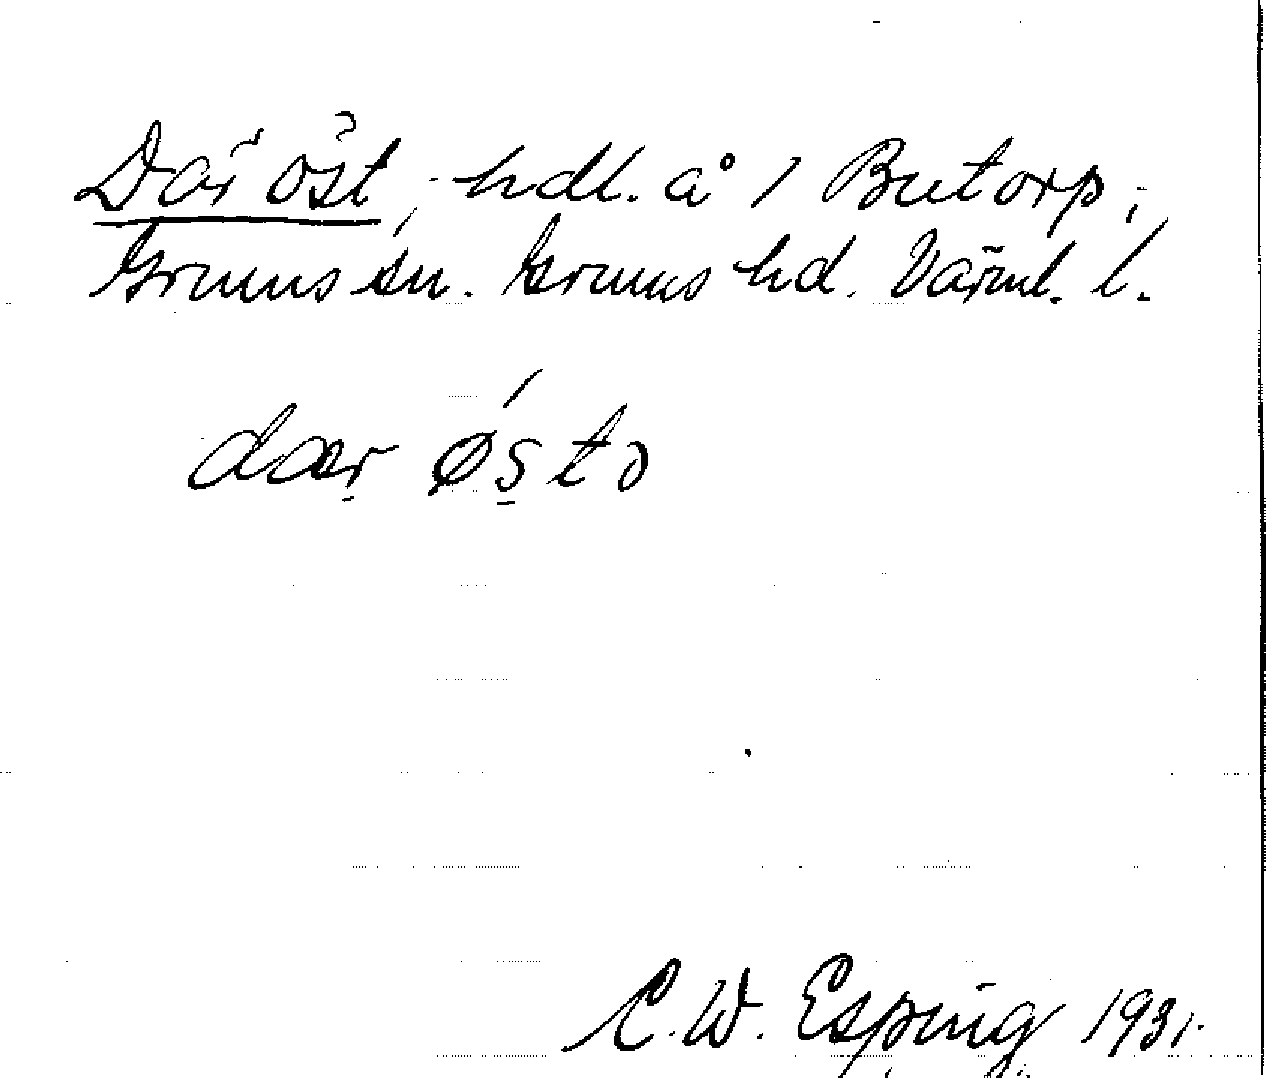 Där öst, hdl. å 1 Butorp,
Grums sn. Grums hd. Värml. l.
dær østə
C. W. Esping 1931.